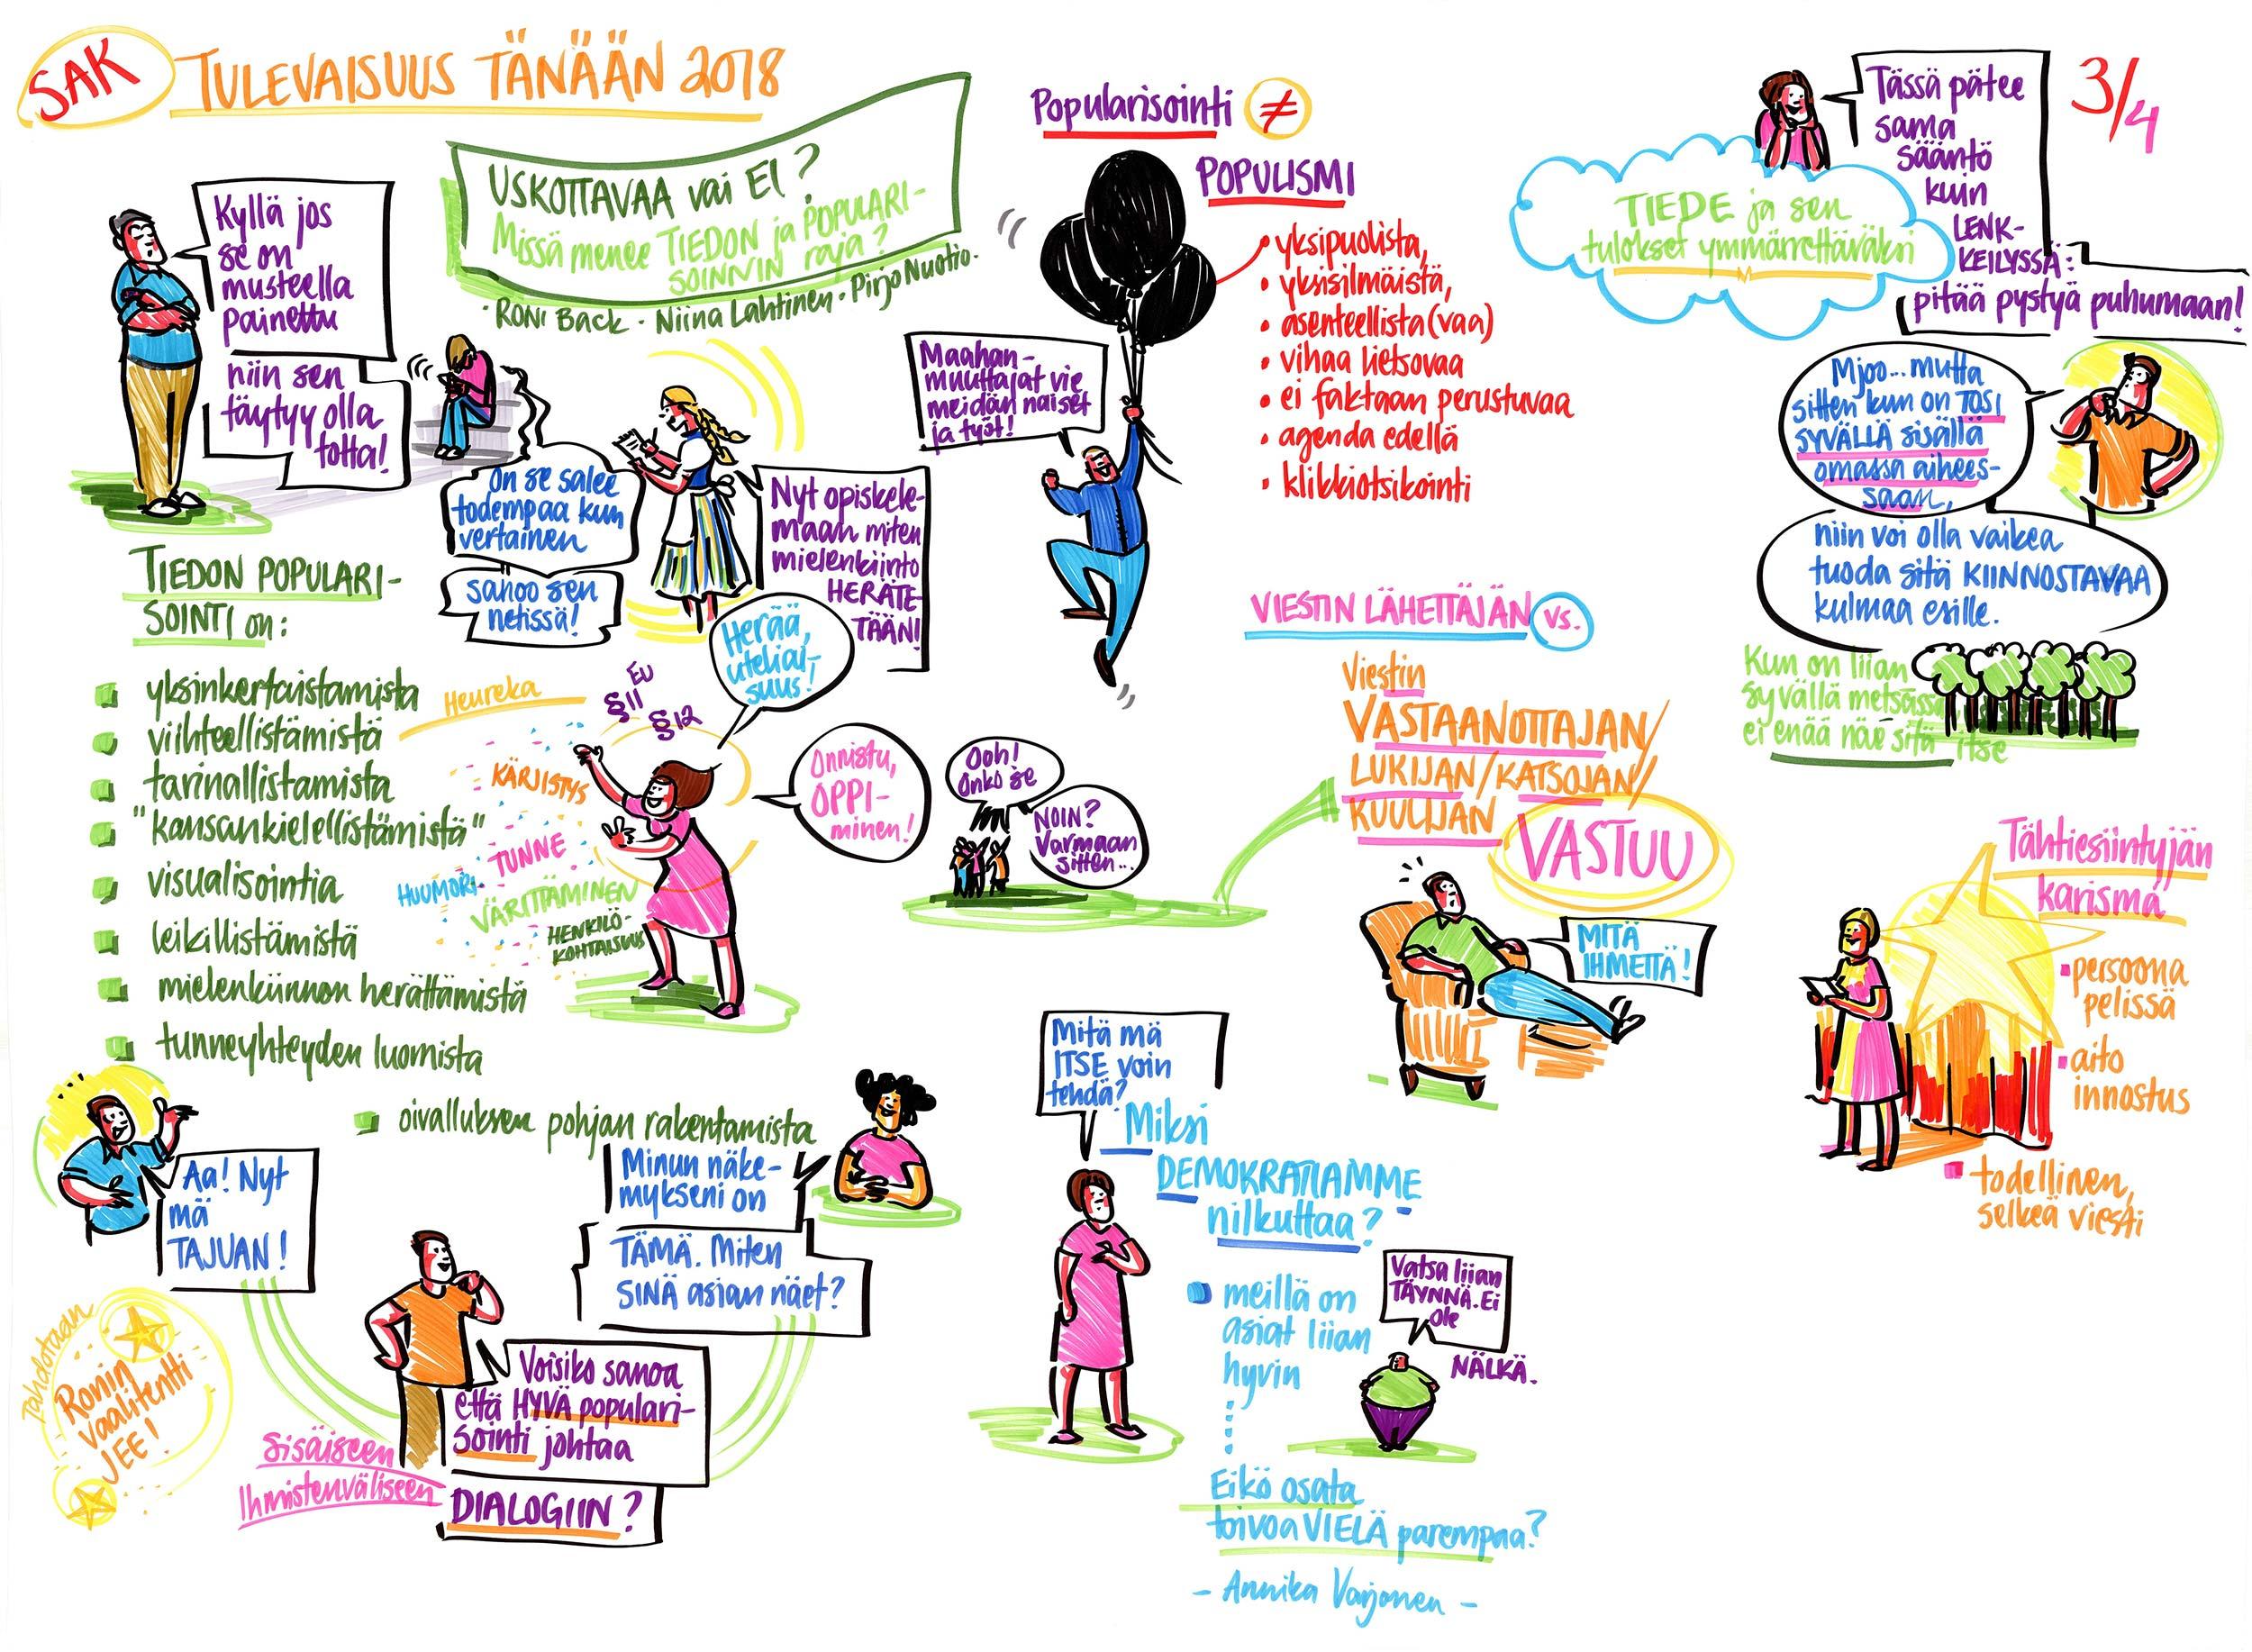 SAK
TULEVAISUUS TÄNÄÄN 2018
USKOTTAVAA vai EI?
Missä menee TIEDON ja POPULARI-
SOINNIN raja?
· RONI Back · Niina Lahtinen · Pirjo Nuotio ·
Kyllä jos
se on
musteella
painettu
niin sen
täytyy olla
totta!
On se salee
todempaa kun
vertainen
sanoo sen
netissä!
Nyt opiskele-
maan miten
mielenkiinto
HERÄTE-
TÄÄN!
TIEDON POPULARI-
SOINTI on:
yksinkertaistamista
viihteellistämistä
tarinallistamista
"kansankielellistämistä"
visualisointia
leikillistämistä
mielenkiinnon herättämistä
tunneyhteyden luomista
oivalluksen pohjan rakentamista
Heureka
EU
§11
§12
KÄRJISTYS
TUNNE
HUUMORI
VÄRITTÄMINEN
HENKILÖ-
KOHTAISUUS
Herää,
uteliai-
suus!
Onnistu,
OPPI-
minen!
Aa! Nyt
mä
TAJUAN!
Minun näke-
mykseni on
TÄMÄ. Miten
SINÄ asian näet?
Voisiko sanoa
että HYVÄ populari-
sointi johtaa
Sisäiseen
Ihmistenväliseen
DIALOGIIN?
Tahdotaan
Ronin
vaalitentti
JEE!
Popularisointi ≠
POPULISMI
• yksipuolista,
• yksisilmäistä,
• asenteellista (vaa)
• vihaa lietsovaa
• ei faktaan perustuvaa
• agenda edellä
• klikkiotsikointi
Maahan-
muuttajat vie
meidän naiset
ja työt!
Ooh!
Onko se
NOIN?
Varmaan
sitten..
VIESTIN LÄHETTÄJÄN vs.
Viestin
VASTAANOTTAJAN/
LUKIJAN/KATSOJAN/
KUULIJAN
VASTUU
MITÄ
IHMETTÄ!
Mitä mä
ITSE voin
tehdä?
Miksi
DEMOKRATIAMME
nilkuttaa?
meillä on
asiat liian
hyvin
Vatsa liian
TÄYNNÄ. Ei
ole
NÄLKÄ.
Eikö osata
toivoa VIELÄ parempaa?
- Annika Varjonen -
3/4
Tässä pätee
sama
sääntö
kuin
LENK-
KEILYSSÄ:
pitää pystyä puhumaan!
TIEDE ja sen
tulokset ymmärrettäväksi
Mjoo... mutta
sitten kun on TOSI
SYVÄLLÄ sisällä
omassa aihees-
saan,
niin voi olla vaikea
tuoda sitä KIINNOSTAVAA
kulmaa esille.
Kun on liian
syvällä metsässä
ei enää näe sitä itse
Tähtiesiintyjän
karisma
persoona
pelissä
aito
innostus
todellinen,
selkeä viesti